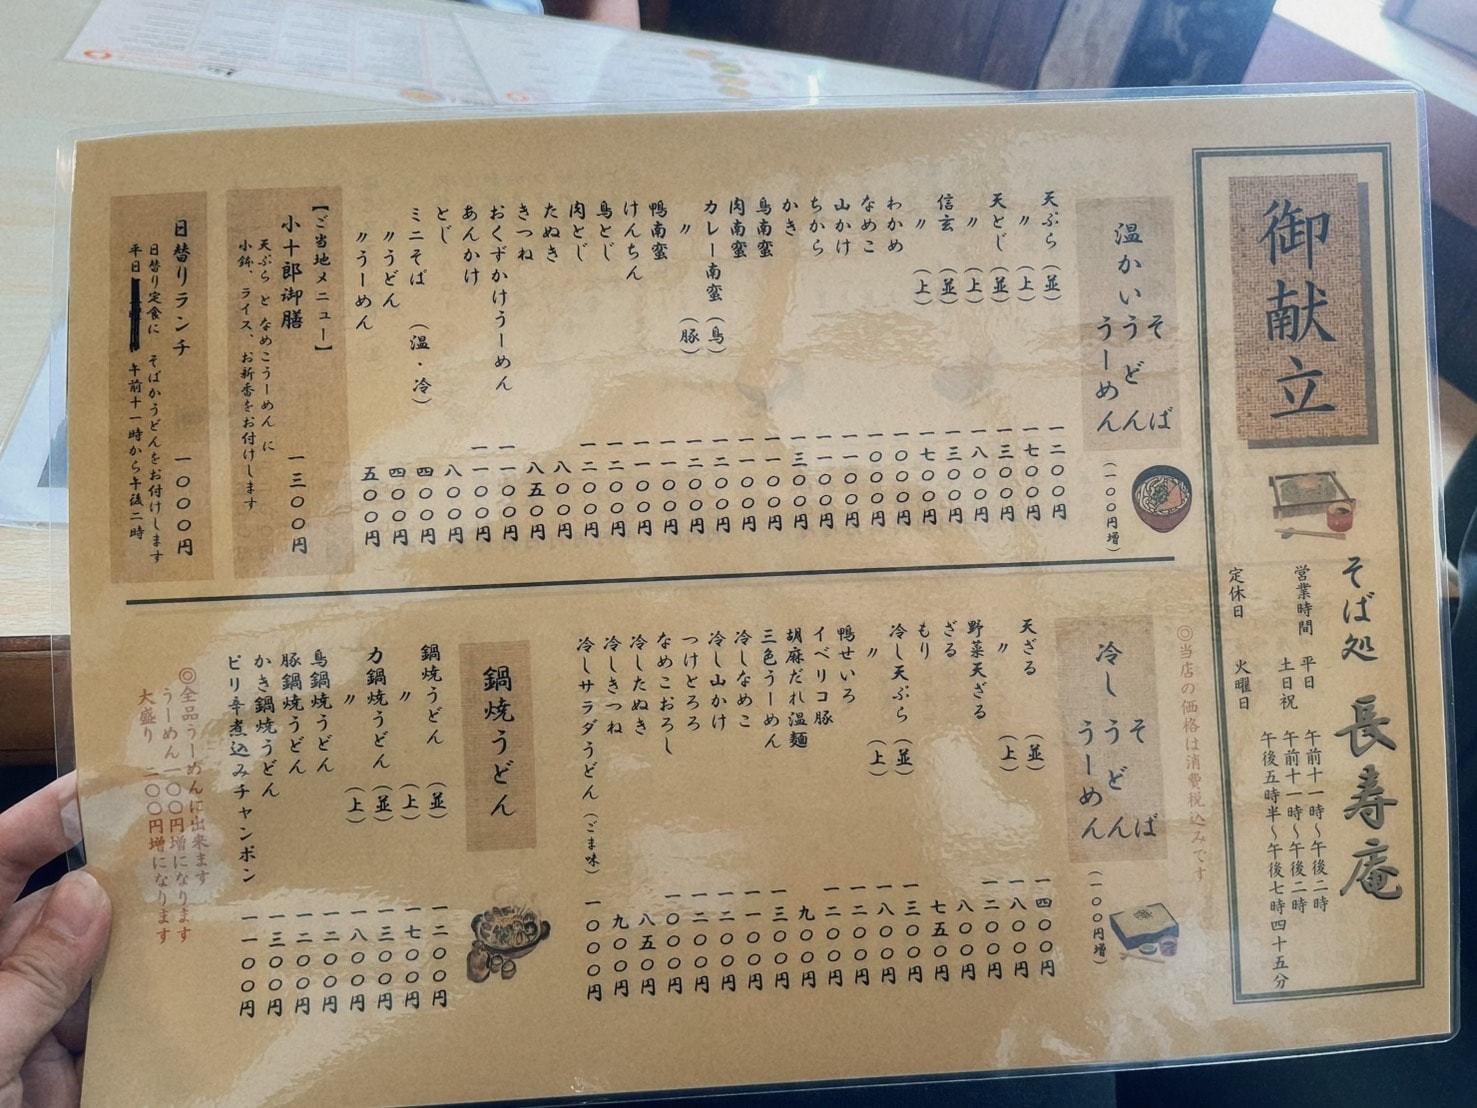 御献立
そば処 長寿庵
営業時間 平日 午前十一時～午後二時
土日祝 午前十一時～午後二時
午後五時半～午後七時四十五分
定休日 火曜日
◎当店の価格は消費税込みです
温かい
そば
うどん
うーめん
(一〇〇円増)
天ぷら (並) 一二〇〇円
〃 (上) 一七〇〇円
天とじ (並) 一三〇〇円
〃 (上) 一八〇〇円
信玄 (並) 一三〇〇円
〃 (上) 一七〇〇円
わかめ 一〇〇〇円
なめこ 一〇〇〇円
山かけ 一一〇〇円
ちから 一一〇〇円
かき 一三〇〇円
鳥南蛮 一一〇〇円
肉南蛮 一一〇〇円
カレー南蛮 (鳥) 一二〇〇円
〃 (豚) 一二〇〇円
鴨南蛮 一一〇〇円
けんちん 一一〇〇円
鳥とじ 一二〇〇円
肉とじ 一二〇〇円
たぬき 八〇〇円
きつね 八五〇円
おくずかけうーめん 一一〇〇円
あんかけ 一一〇〇円
とじ 八〇〇円
ミニそば (温・冷) 四〇〇円
〃うどん 四〇〇円
〃うーめん 五〇〇円
【ご当地メニュー】
小十郎御膳 一三〇〇円
天ぷら と なめこうーめん に
小鉢、ライス、お新香をお付けします
日替りランチ 一〇〇〇円
日替り定食に そばかうどんをお付けします
平日 午前十一時から午後二時
冷し
そば
うどん
うーめん
(一〇〇円増)
天ざる (並) 一四〇〇円
〃 (上) 一八〇〇円
野菜天ざる 一二〇〇円
ざる 八〇〇円
もり 七五〇円
冷し天ぷら (並) 一三〇〇円
〃 (上) 一八〇〇円
鴨せいろ 一二〇〇円
イベリコ豚 一二〇〇円
胡麻だれ温麺 九〇〇円
三色うーめん 一三〇〇円
冷しなめこ 一一〇〇円
冷し山かけ 一二〇〇円
つけとろろ 一二〇〇円
なめこおろし 一〇〇〇円
冷したぬき 八五〇円
冷しきつね 九〇〇円
冷しサラダうどん(ごま味) 一〇〇〇円
鍋焼うどん
鍋焼うどん (並) 一二〇〇円
〃 (上) 一七〇〇円
力鍋焼うどん (並) 一三〇〇円
〃 (上) 一八〇〇円
鳥鍋焼うどん 一二〇〇円
豚鍋焼うどん 一二〇〇円
かき鍋焼うどん 一三〇〇円
ピリ辛煮込みチャンポン 一一〇〇円
◎全品うーめんに出来ます
うーめん一〇〇円増になります
大盛り 二〇〇円増になります